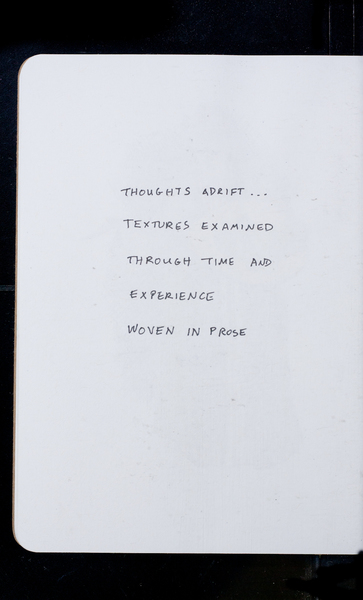 THOUGHTS ADRIFT...
TEXTURES EXAMINED
THROUGH TIME AND
EXPERIENCE
WOVEN IN PROSE